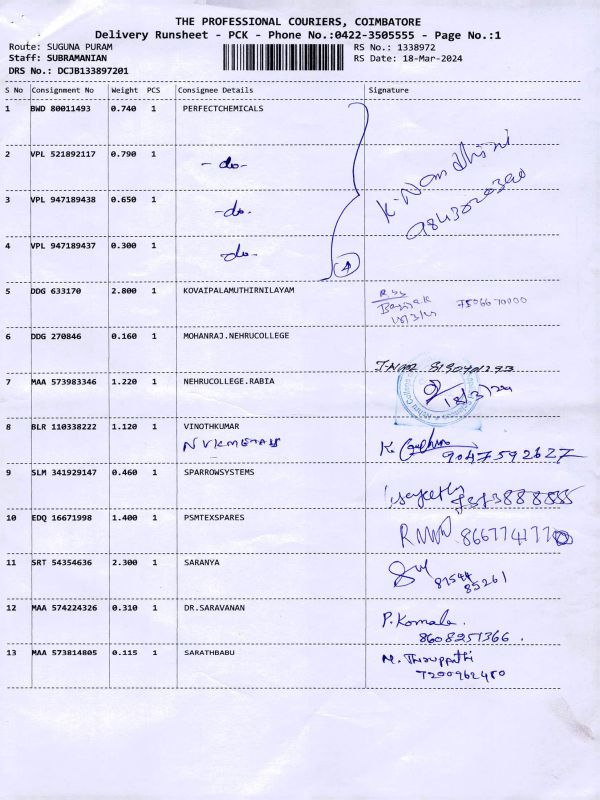 THE PROFESSIONAL COURIERS, COIMBATORE
Delivery Runsheet - PCK - Phone No.:0422-3505555 - Page No.:1
Route: SUGUNA PURAM RS No.: 1338972
Staff: SUBRAMANIAN RS Date: 18-Mar-2024
DRS No.: DCJB133897201
S No Consignment No Weight PCS Consignee Details Signature
1 BWD 80011493 0.740 1 PERFECTCHEMICALS
2 VPL 521892117 0.790 1 -do-
K. Nandhini
3 VPL 947189438 0.650 1 -do-
9843020390
4 VPL 947189437 0.300 1 -do-
4
5 DDG 633170 2.800 1 KOVAIPALAMUTHIRNILAYAM
7506670000
18/3/24
6 DDG 270846 0.160 1 MOHANRAJ.NEHRUCOLLEGE
7 MAA 573983346 1.220 1 NEHRUCOLLEGE.RABIA
18/3/24
8 BLR 110338222 1.120 1 VINOTHKUMAR
K.
9047592627
9 SLM 341929147 0.460 1 SPARROWSYSTEMS
10 EDQ 16671998 1.400 1 PSMTEXSPARES
11 SRT 54354636 2.300 1 SARANYA
87544
85261
12 MAA 574224326 0.310 1 DR.SARAVANAN P.Komala.
8608251366.
13 MAA 573814805 0.115 1 SARATHBABU M. Thiruppathi
7200962480